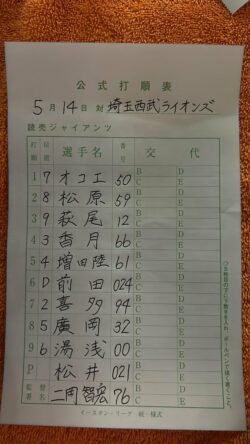 公式打順表
5月14日 対 埼玉西武ライオンズ
読売ジャイアンツ
打順 守備 選手名 番号 交代
1 7 オコエ 50 B C D E
2 8 松原 59 B C D E
3 9 萩尾 12 B C D E
4 3 香月 66 B C D E
5 4 増田陸 61 B C D E
6 D 前田 024 B C D E
7 2 喜多 94 B C D E
8 5 廣岡 32 B C D E
9 6 湯浅 00 B C D E
P 松井 021 B C D E
監督署名 二岡智宏 76 B C D E
イースタン・リーグ 統一様式